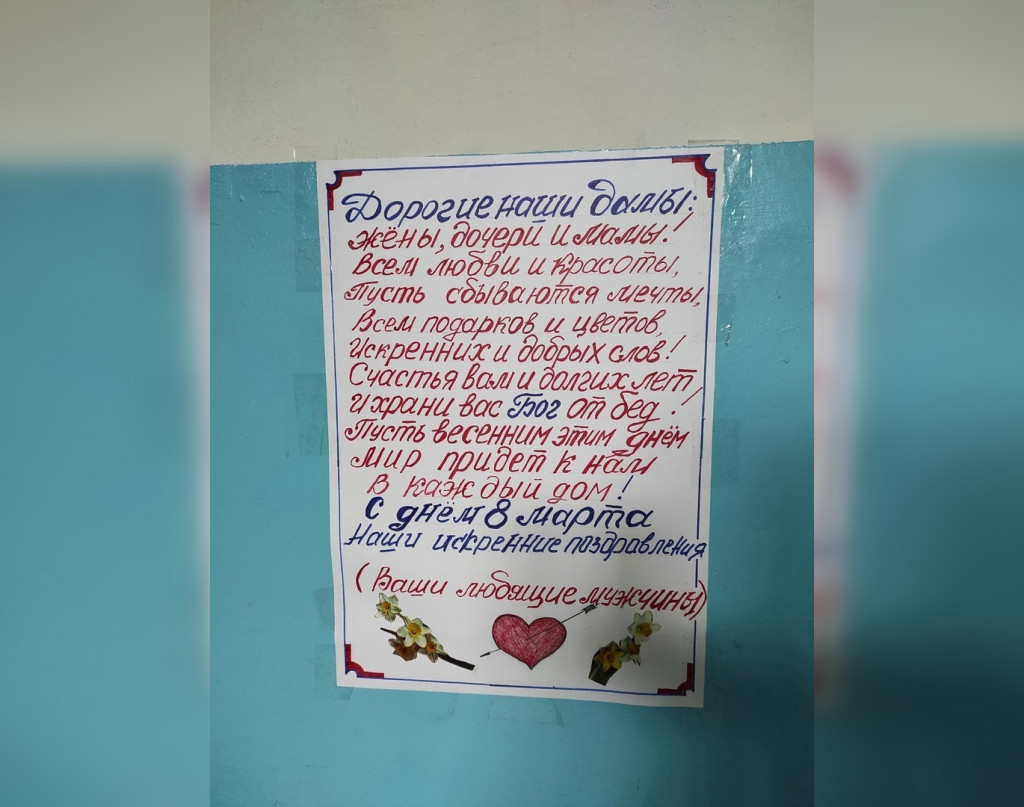 Дорогие наши дамы:
жёны, дочери и мамы!
Всем любви и красоты,
Пусть сбываются мечты,
Всем подарков и цветов,
Искренних и добрых слов!
Счастья вам и долгих лет,
И храни вас Бог от бед!
Пусть весенним этим днём
Мир придет к нам
В каждый дом!
С днём 8 марта
Наши искренние поздравления
(Ваши любящие мужчины)